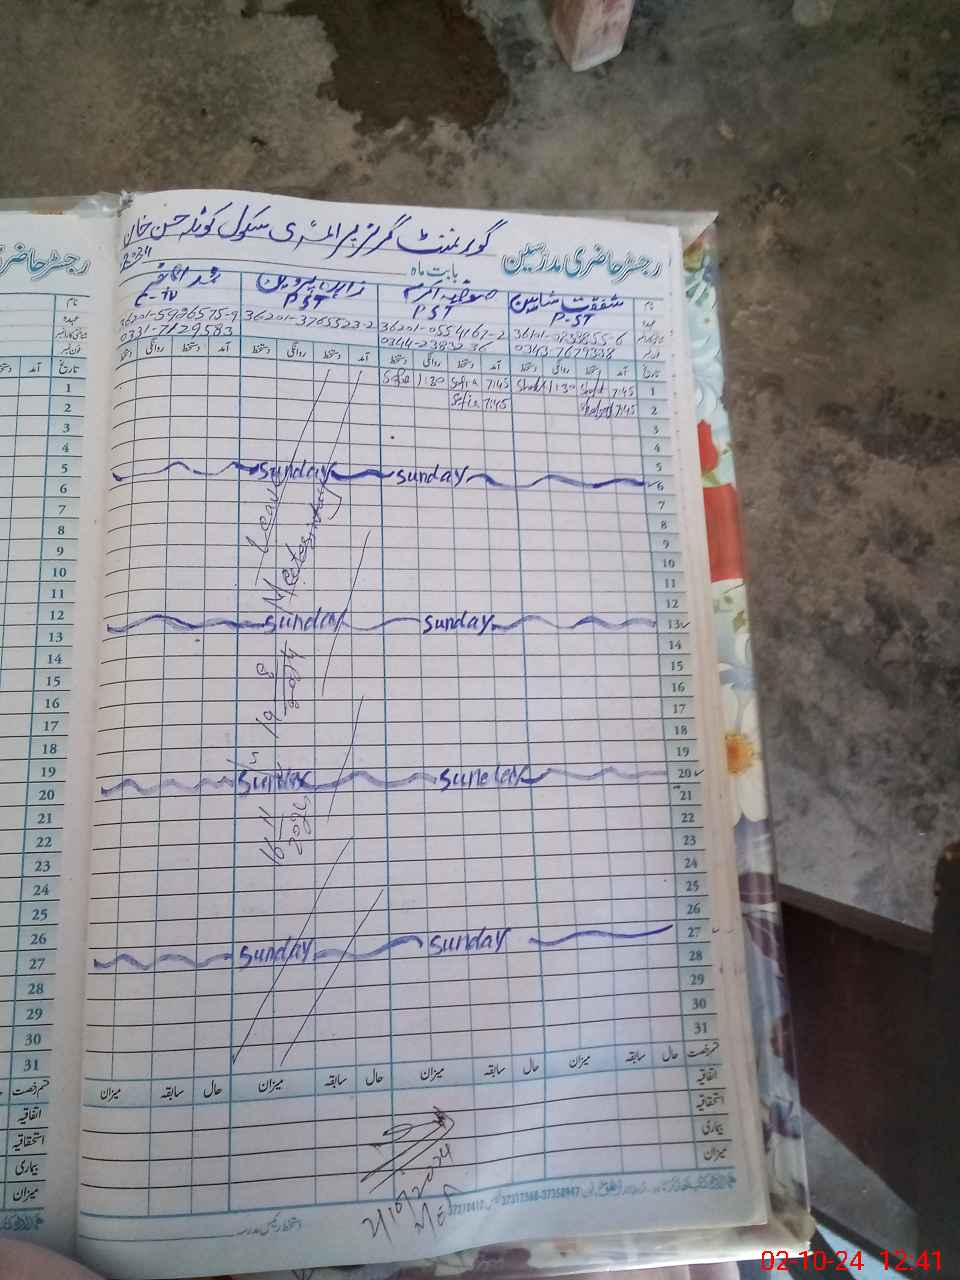 گورنمنٹ گرلز پرائمری سکول کوٹلہ حسن خان
رجسٹر حاضری مدرسین
بابت ماہ
2024
نام شفقت شاہین صفیہ اکرم
عہدہ P-ST PST PST C-IV
36201-3765523-2 36201-0554167-2
0344-2383236 0331-7129583
تاریخ آمد دستخط روانگی دستخط آمد دستخط روانگی دستخط آمد دستخط روانگی دستخط آمد دستخط روانگی دستخط
1 7:45 1:30 7:45 Sofia 1:30 Sofia
2 7:45 7:45 Sofia
3
4
5
6 Sunday Sunday
7
8
9
10
11
12
13 Sunday Sunday
14
15
16
17
18
19
20 Sunday Sunday
21
22
23
24
25
26
27 Sunday Sunday
28
29
30
31
Leave
19 8 2024
16 11 2024
قسم رخصت حال سابقہ میزان حال سابقہ میزان حال سابقہ میزان
اتفاقیہ
استحقاقیہ
بیماری
میزان
2/10/2024
37317368-37358947
رجسٹر حاضری
نام
عہدہ
تاریخ آمد دستخط
1
2
3
4
5
6
7
8
9
10
11
12
13
14
15
16
17
18
19
20
21
22
23
24
25
26
27
28
29
30
31
قسم رخصت
اتفاقیہ
استحقاقیہ
بیماری
میزان
02-10-24 12:41